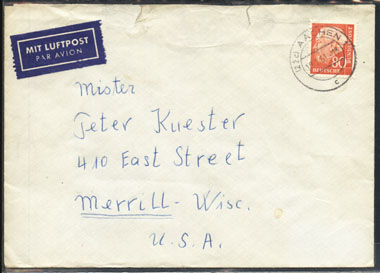 MIT LUFTPOST
PAR AVION
(22c) AACHEN
c
80
DEUTSCHE
Mister
Peter Kuester
410 East Street
Merrill - Wisc.
U.S.A.